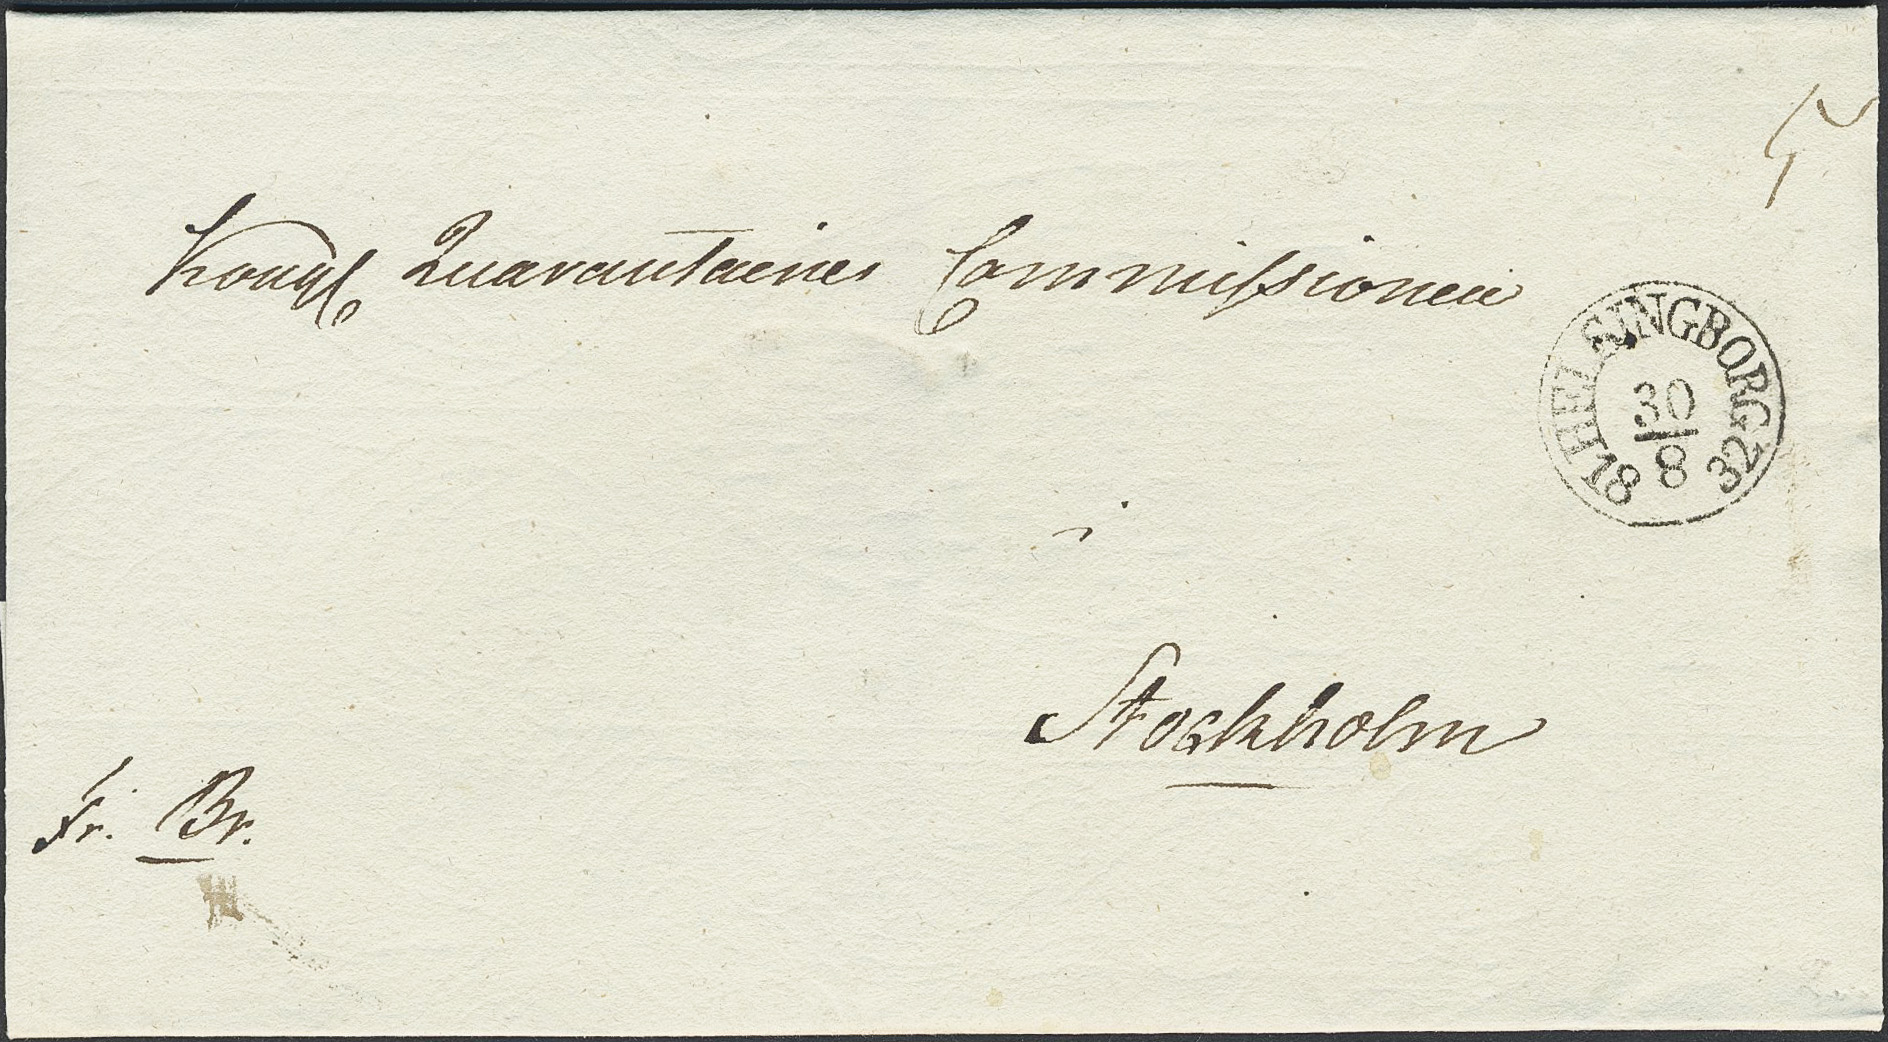 5
Kongl Quarantaines Commissionen
HELSINGBORG
30
8
1832
i
Stockholm
Fr. Br.